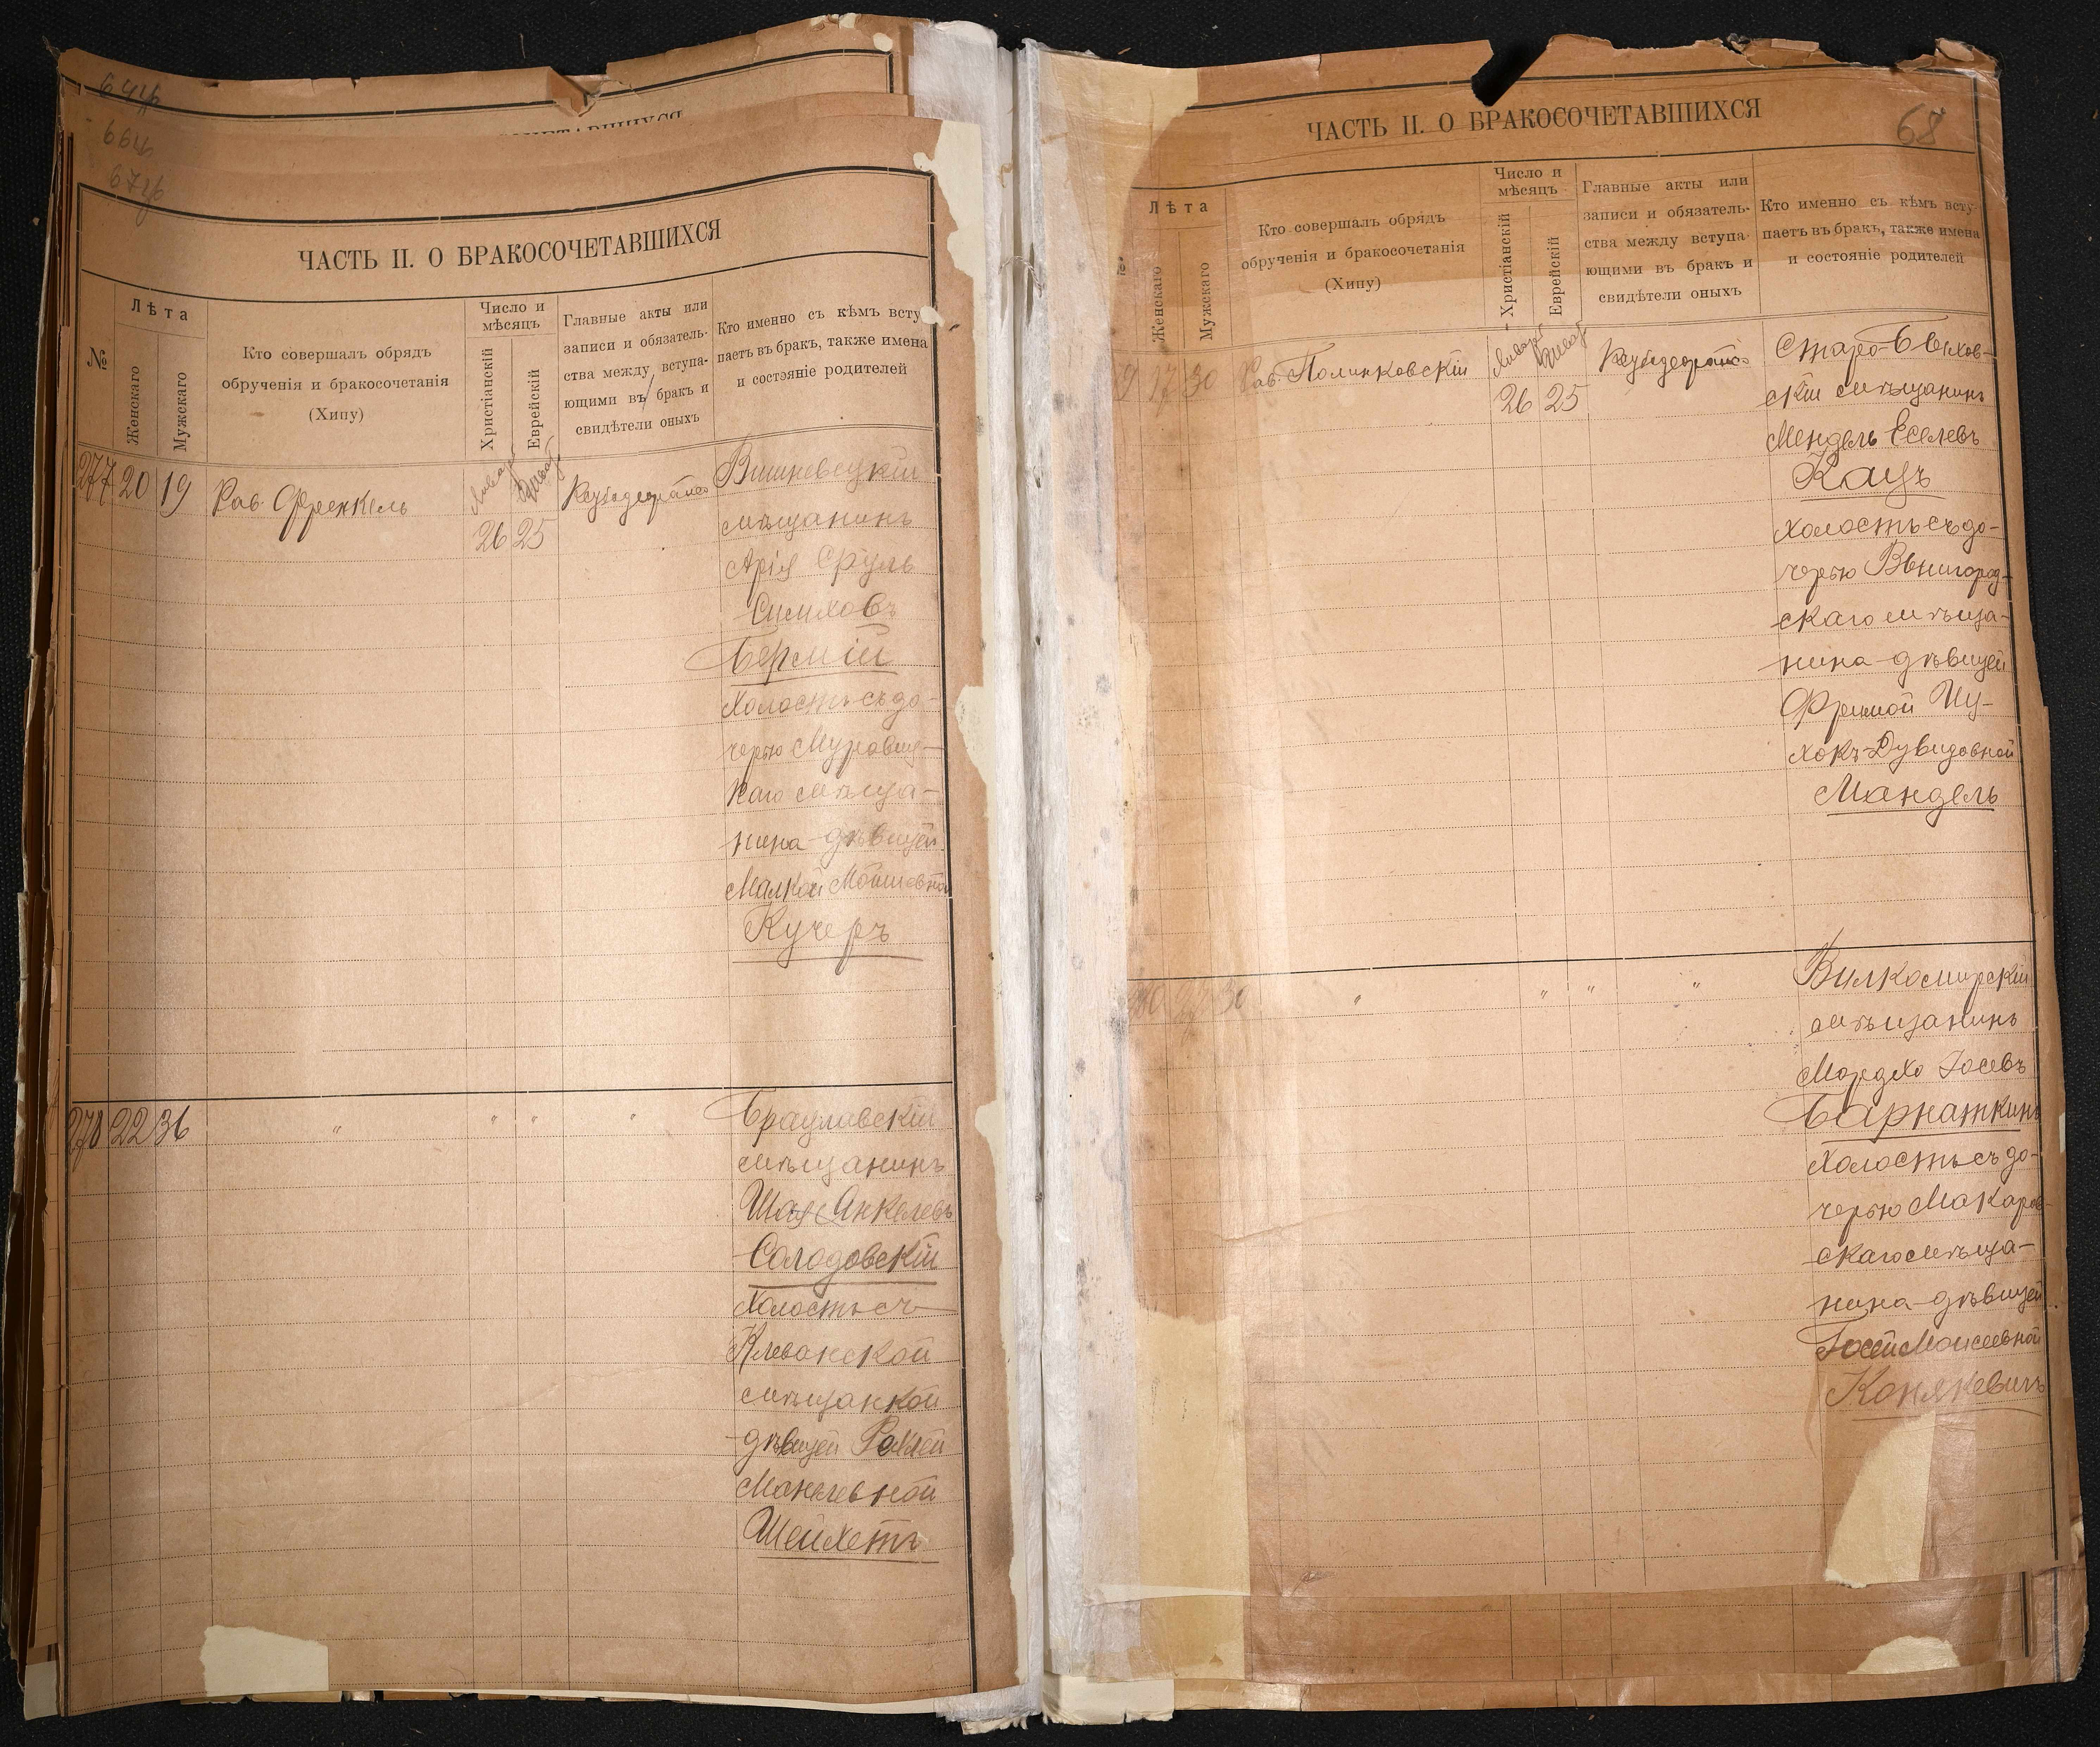 64
66
67
ЧАСТЬ II. О БРАКОСОЧЕТАВШИХСЯ
№
Лѣта
Женскаго
Мужскаго
Кто совершалъ обрядъ
обрученія и бракосочетанія
(Хипу)
Число и
мѣсяцъ
Христіанскій
Еврейскій
Главные акты или
записи и обязатель-
ства между вступа-
ющими въ бракъ и
свидѣтели оныхъ
Кто именно съ кѣмъ всту
паетъ въ бракъ, также имена
и состояніе родителей
277 20 19 Рав. Френкель
Январ Шват
26 25
Вишневецкій
мѣщанинъ
Арія Сруль
Симховъ
Бермій
холостъ съ до-
черью Муровиц-
каго мѣща-
нина дѣвицей
Малкой Мошковной
Кучеръ
278 22 36 " " " "
Браиловскій
мѣщанинъ
Шая Янкелевъ
Солодовскій
холостъ съ
Клеванской
мѣщанкой
дѣвицей Рейзей
Манелевной
Шейхетъ
ЧАСТЬ II. О БРАКОСОЧЕТАВШИХСЯ
68
Лѣта
Женскаго
Мужскаго
Кто совершалъ обрядъ
обрученія и бракосочетанія
(Хипу)
Число и
мѣсяцъ
Христіанскій
Еврейскій
Главные акты или
записи и обязатель-
ства между вступа-
ющими въ бракъ и
свидѣтели оныхъ
Кто именно съ кѣмъ всту-
паетъ въ бракъ, также имена
и состояніе родителей
9 17 30 Рав. Полинковскій
Январ Шват
26 25
Старо-Быхов-
скій мѣщанинъ
Мендель Еселевъ
Кацъ
холостъ съ до-
черью Звенигород-
скаго мѣща-
нина дѣвицей
Фримой Иц-
хокъ-Дувидовной
Мандель
280 22 30 " " " "
Вилкомирскій
мѣщанинъ
Мордхо Іосевъ
Барнаткинъ
холостъ съ до-
черью Макаров-
скаго мѣща-
нина дѣвицей
Госей Моисеевной
Конякевичъ